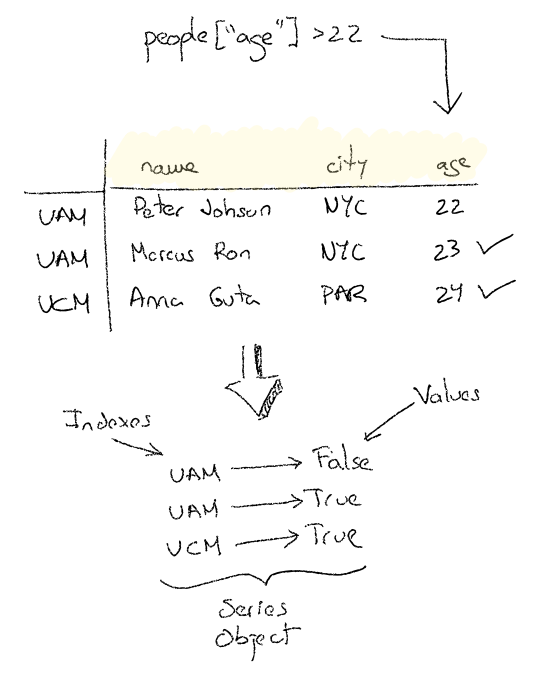 people["age"] >22
name city age
UAM Peter Johson NYC 22
UAM Marcus Ron NYC 23 ✓
UCM Anna Guta PAR 24 ✓
Indexes Values
UAM → False
UAM → True
UCM → True
Series
Object